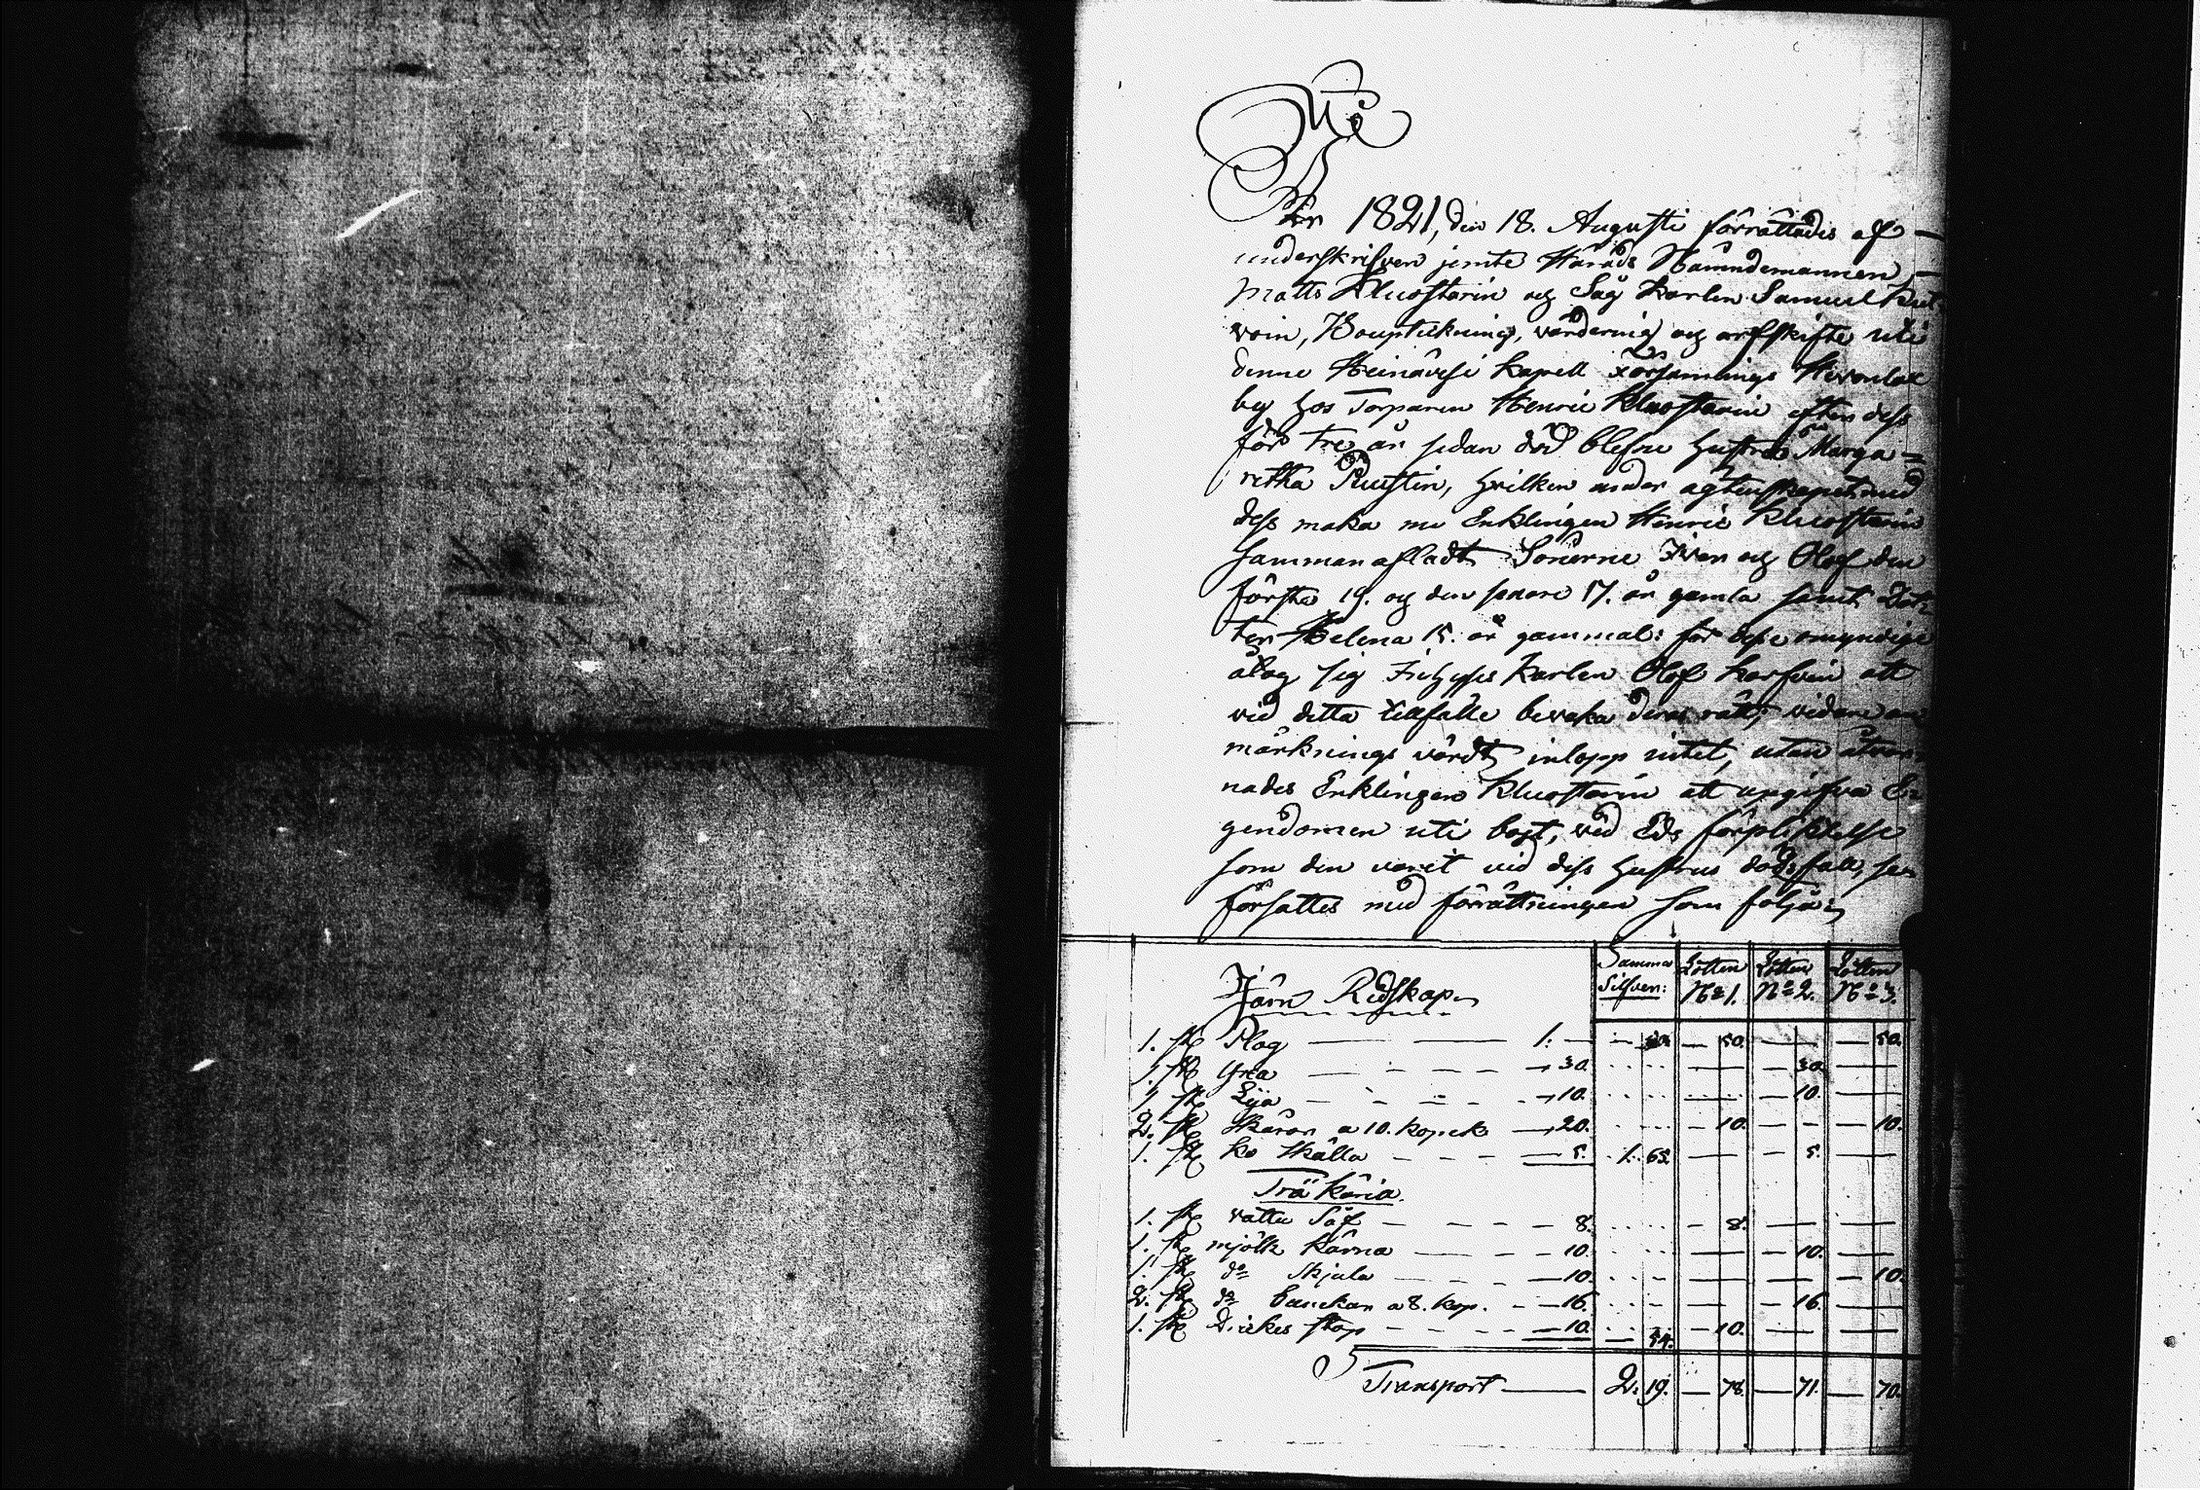 N:o 5
År 1821, den 18. Augusti förrättades af —
underskrifven jemte Härads Nämndemannen —
Matts Kluostarin og Såg Karlen Samuel
voin, Bouptekning, värdering og arfskifte uti
denne Heinävesi Kapell Församlings Hevonlax
by hos Torparen Henric Kluostarin efter dess
för tre år sedan död blefne hustru Marga=
retha Ruustin, hvilken under ägtenskapet med
dess maka nu Enklingen Henric Kluostarin
sammanafladt Sönerne Iver og Olof den
förste 19. og den senare 17. år gamla samt Dot=
ter Helena 15. år gammal: för desse omyndige
åtog sig Karlen Olof Karfvin att
vid detta tillfälle bevaka deras rätt, vidare an
märknings värdt inlopp intet, utan åtvar
nades Enklingen Kluostarin att upgifva E=
gendomen uti bogt, ved Eds förpliktelse
som den varit vid dess hustrus dödsfall, sen
försattes med förrättningen som följer;
Summa Silfver: Lotten N:o 1. Lotten N:o 2. Lotten N:o 3.
Järn Redskap
1. st Plog — — 1. — — 50. — — 50.
1. st Gräa — — 30. — 30.
1. st Lija — — 10. — 10.
2. st Skäror a 10. kopek — 20. — 10. — 10.
1. st ko skälla — — 5. 1. 65. — 5. —
Träkäria.
1. st vattu Så — — 8. — 8. — —
1. st mjölk kärna — — 10. — — 10. —
1. st d:o skjula — — 10. — — 10.
2. st d:o bunckar a 8. kop. — 16. — — 16. —
1. st Drickes stop — — 10. — 54. — 10. — —
Transport — 2. 19. — 78. — 71. — 70.